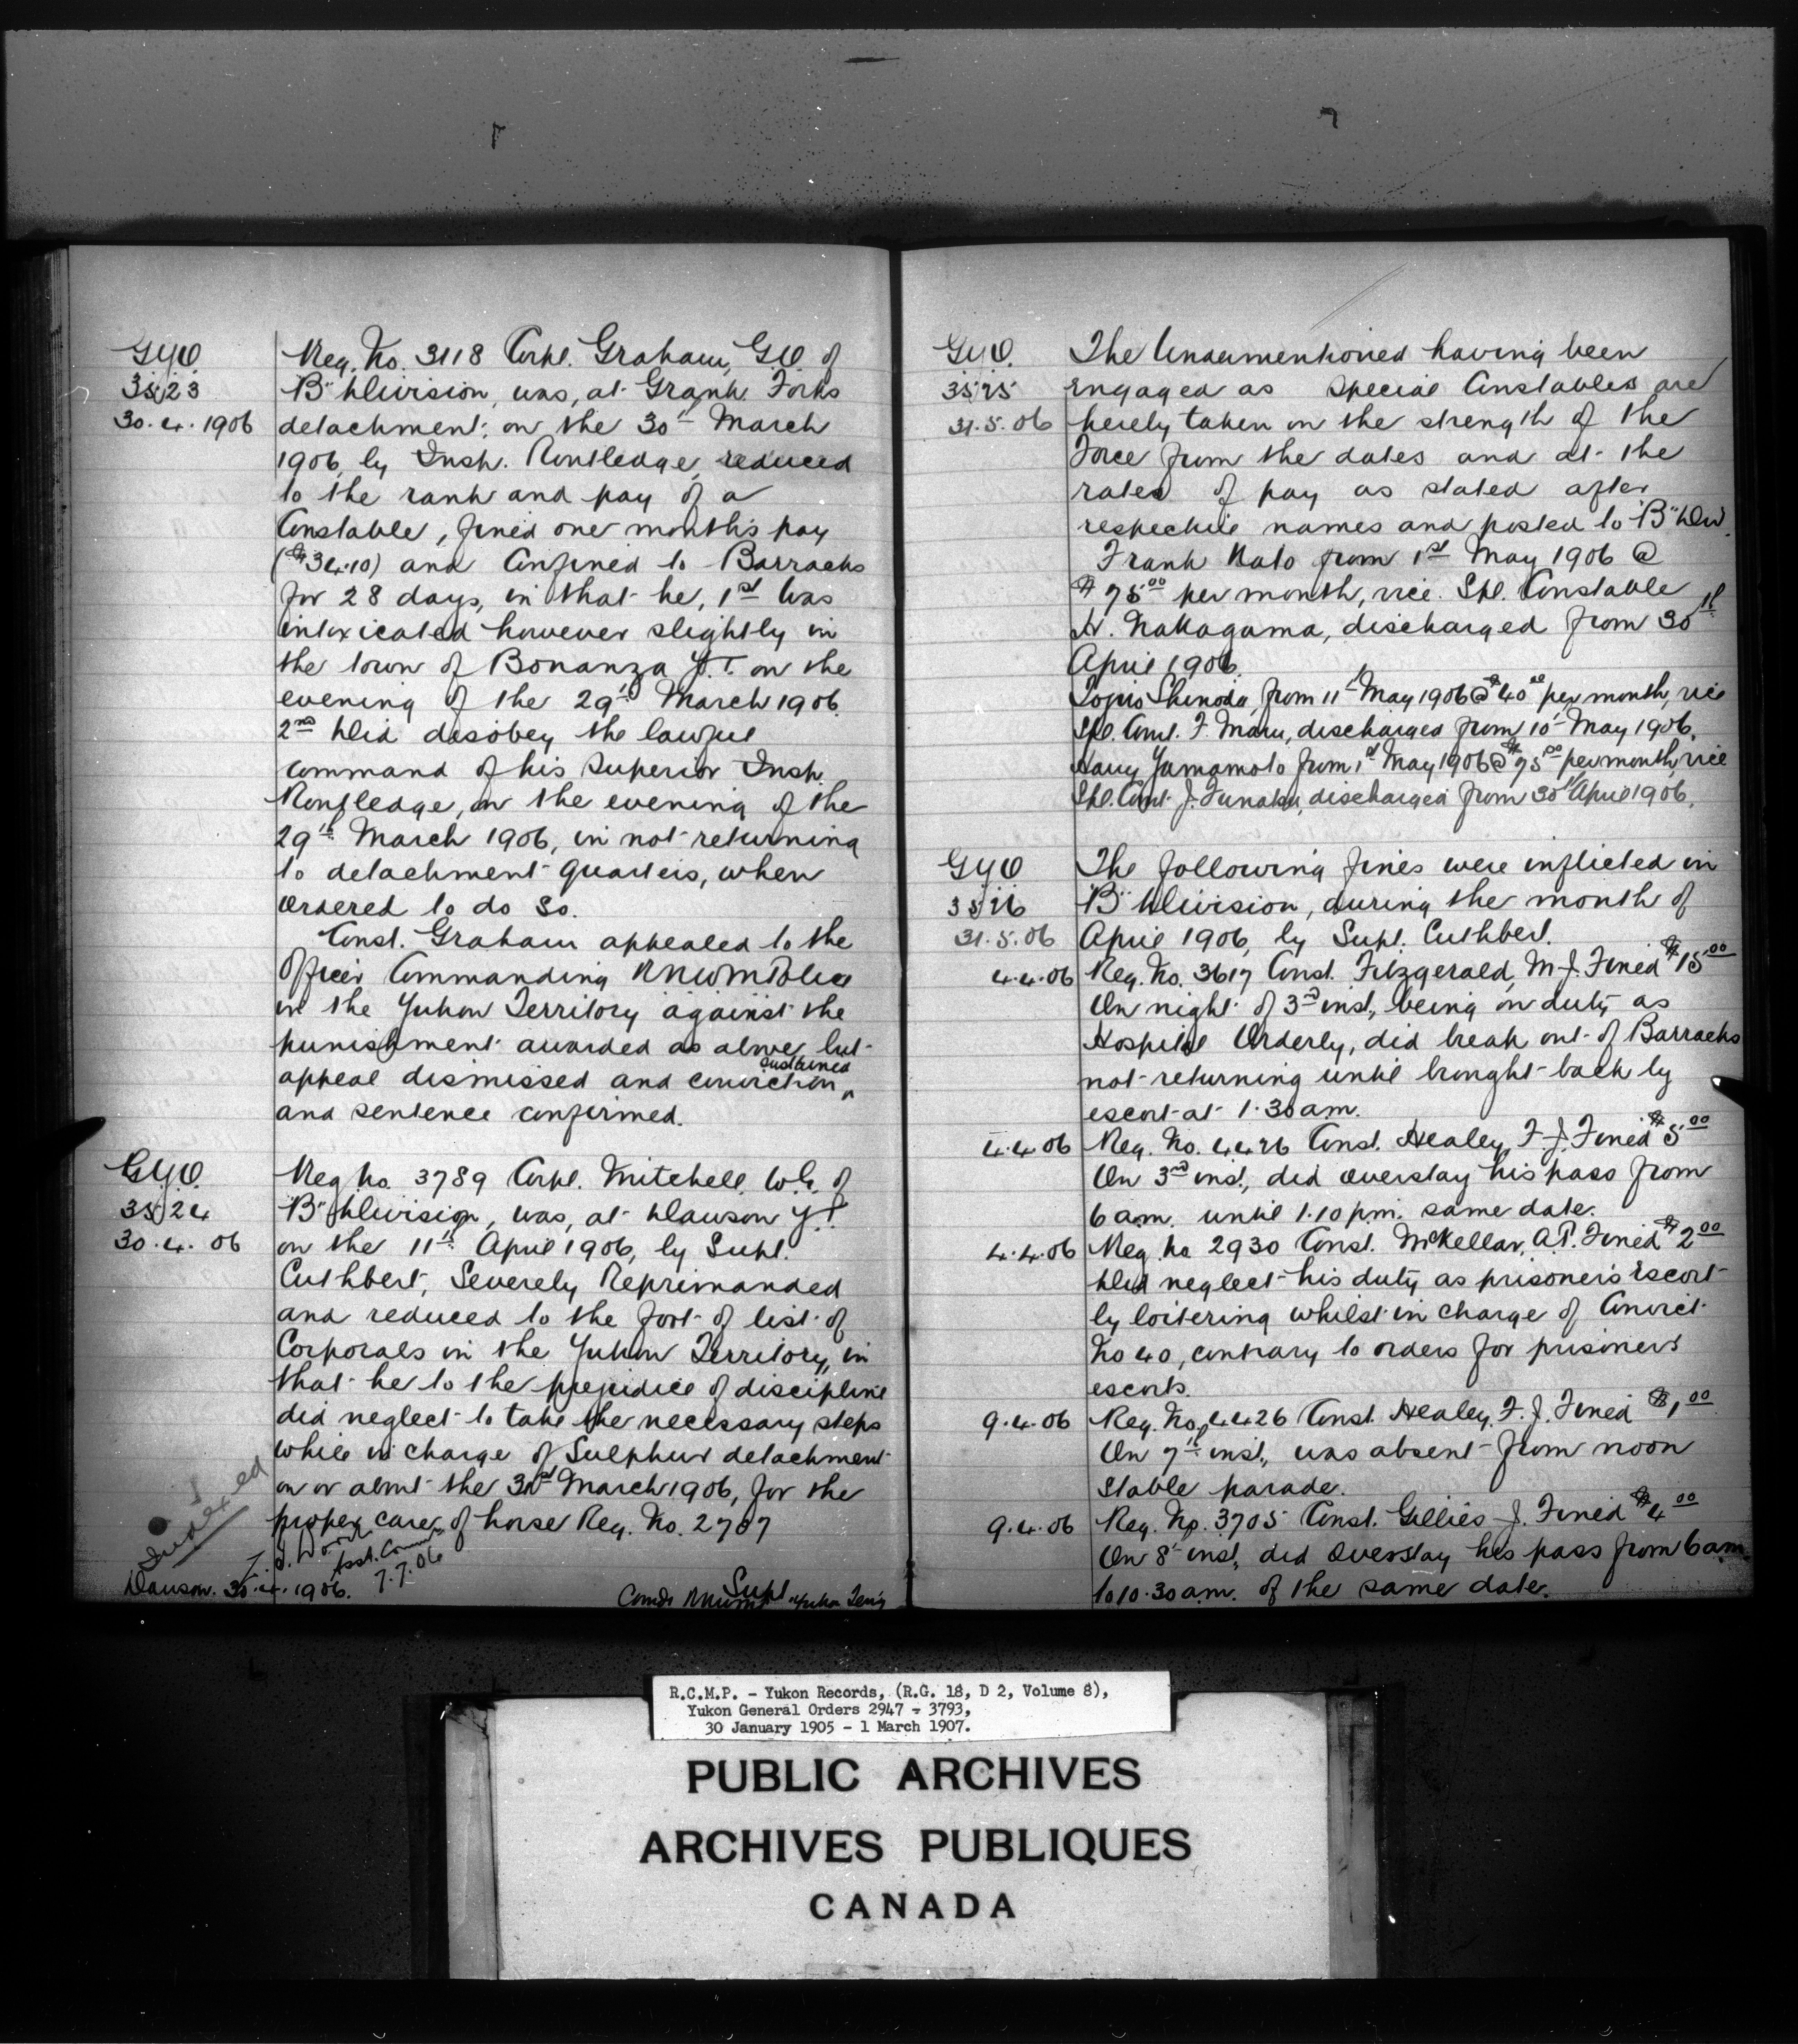 G.Y.O.
3523
30.4.1906
Reg. No. 3118 Corpl. Graham, G.O. of
"B" Division, was, at Grank Forks
detachment, on the 30th March
1906, by Insp. Routledge, reduced
to the rank and pay of a
Constable, fined one months pay
($34.10) and Confined to Barracks
for 28 days, in that he, 1st Was
intoxicated however slightly in
the town of Bonanza Y.T. on the
evening of the 29th March 1906.
2nd Did disobey the lawful
command of his Superior Insp.
Routledge, on the evening of the
29th March 1906, in not returning
to detachment quarters, when
ordered to do so.
Const. Graham appealed to the
Officer Commanding RNWMPolice
in the Yukon Territory against the
punishment awarded as above but
sustained
appeal dismissed and conviction ^
and sentence confirmed.
G.Y.O.
3524
30.4.06
Reg. No. 3789 Corpl. Mitchell, W.G. of
"B" Division, was, at Dawson Y.T.
on the 11th April 1906, by Supt.
Cuthbert, Severely Reprimanded
and reduced to the foot of list of
Corporals in the Yukon Territory, in
that he to the prejudice of discipline
did neglect to take the necessary steps
while in charge of Sulphur detachment
on or about the 31st March 1906, for the
proper care of horse Reg. No. 2707
Indexed
Asst. Commr
7.7.06
Dawson. 30.4.1906.
Supt
Comdg RNWMP Yukon Terr'y
G.Y.O.
3525
31.5.06
The Undermentioned having been
engaged as Special Constables are
hereby taken on the strength of the
Force from the dates and at the
rates of pay as stated after
respective names and posted to "B" Div.
Frank Kato from 1st May 1906 @
$75.00 per month, vice Spl. Constable
H. Nakagama, discharged from 30th
April 1906.
Shinoda, from 11th May 1906 @ $40.00 per month, vice
Spl. Const. F. Maru, discharged from 10th May 1906.
Harry Yamamoto from 1st May 1906 @ $75.00 per month, vice
Spl. Const. J. Funaku, discharged from 30th April 1906.
G.Y.O.
3526
31.5.06
The following fines were inflicted in
"B" Division, during the month of
April 1906, by Supt. Cuthbert.
4.4.06 Reg. No. 3617 Const. Fitzgerald, M.J. Fined $15.00
On night of 3rd inst., being on duty as
Hospital Orderly, did break out of Barracks
not returning until brought back by
escort at 1.30 a.m.
4.4.06 Reg. No. 4426 Const. Healey, F.J. Fined $5.00
On 3rd inst., did overstay his pass from
6 a.m. until 1.10 p.m. same date.
4.4.06 Reg. No 2930 Const. McKellar, A.P. Fined $2.00
Did neglect his duty as prisoners Escort
by loitering whilst in charge of Convict
No 40, contrary to orders for prisoners
escorts.
9.4.06 Reg. No. 4426 Const. Healey, F.J. Fined $1.00
On 7th inst., was absent from noon
Stable parade.
9.4.06 Reg. No. 3705 Const. Gillies J. Fined $4.00
On 8th inst., did Overstay his pass from 6 a.m.
to 10.30 a.m. of the same date.
R.C.M.P. - Yukon Records, (R.G. 18, D 2, Volume 8),
Yukon General Orders 2947 - 3793,
30 January 1905 - 1 March 1907.
PUBLIC ARCHIVES
ARCHIVES PUBLIQUES
CANADA